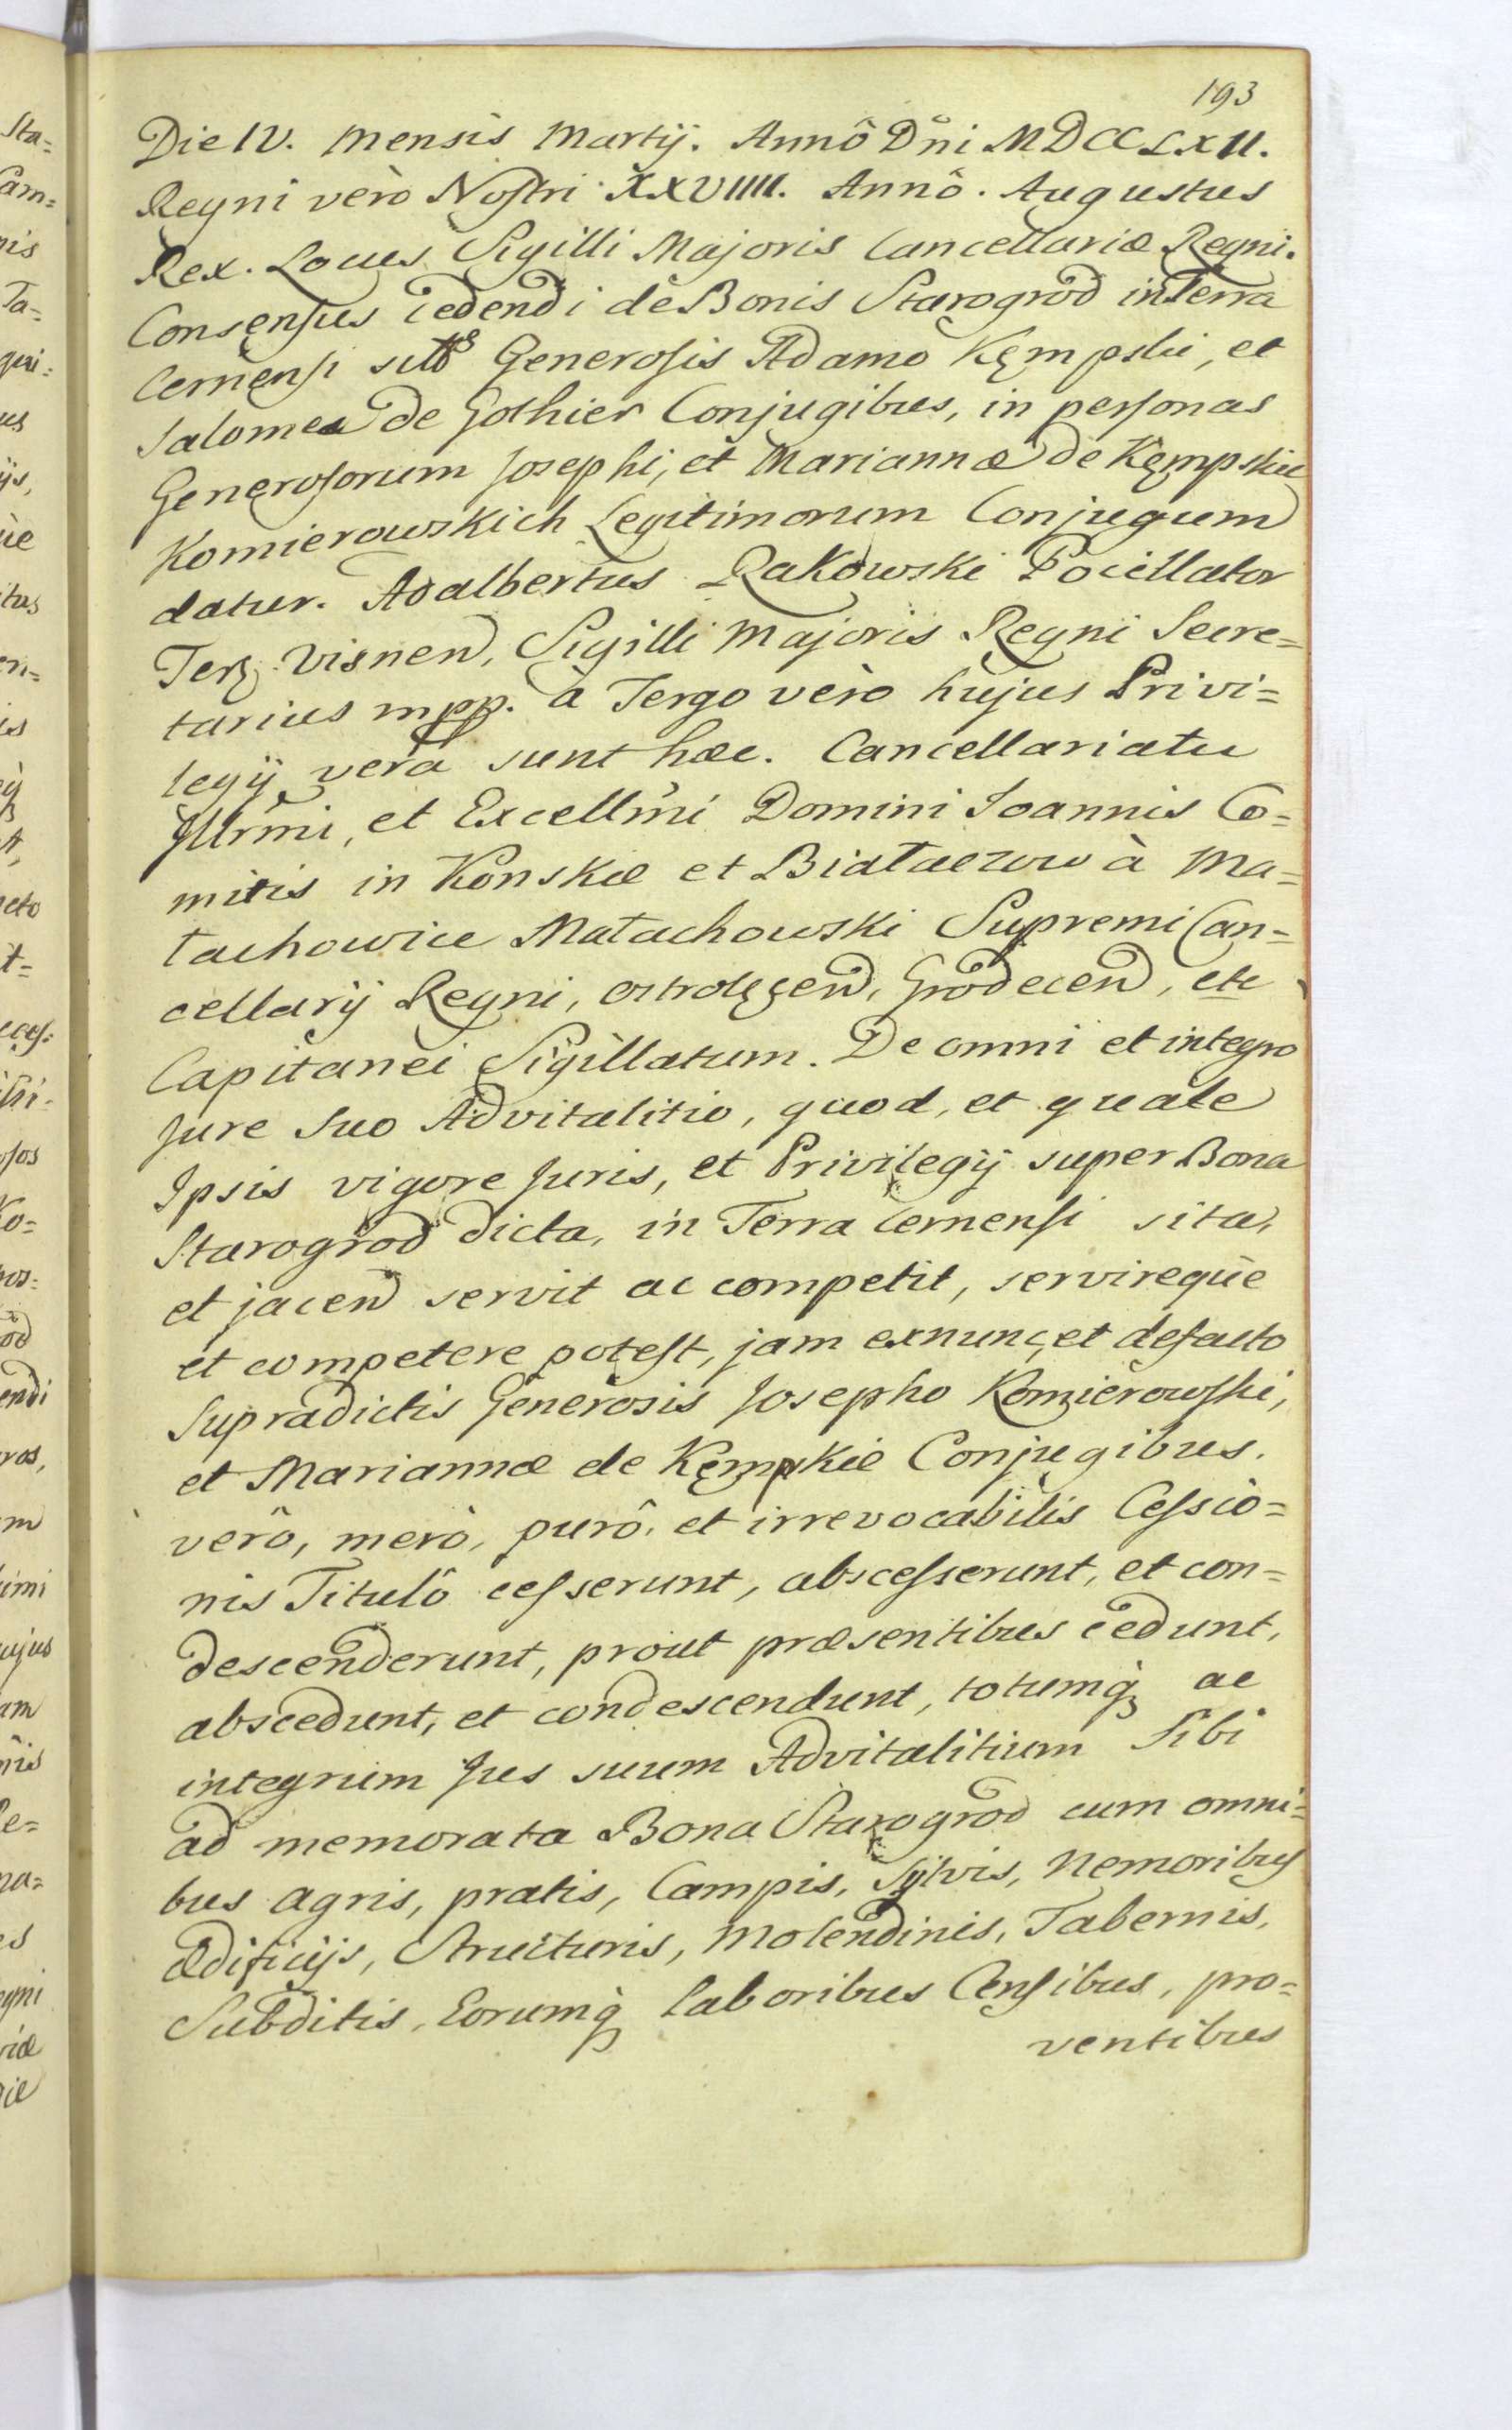 193
Die IV. Mensis Martij. Annô Dñi MDCCLXII.
Regni verò Nostri XXVIIII. Annô. Augustus
Rex. Locus Sigilli Majoris Cancellariæ Regni.
Consensus cedendi de Bonis Starogrod in Terra
Cernensi sitis Generosis Adamo Kęmpski, et
Salomea de Golhier Conjugibus, in personas
Generosorum Josephi, et Mariannæ de Kęmpskie
Komierowskich Legitimorum Conjugum
datur. Adalbertus Rakowski Pocillator
Terꝫ Visnen, Sigilli Majoris Regni Secre=
tarius mpp. à Tergo verò hujus Privi=
legij verà sunt hæc. Cancellariatu
Jllrmi, et Excellmi Domini Joannis Co=
mitis in Konskie et Białaczow à Ma=
łachowice Małachowski Supremi Can=
cellarij Regni, Ostrolęcen, Grodecen, etc
Capitanei Sigillatum. De omni et integro
Jure suo Advitalitio, quod, et quale
Ipsis vigore Juris, et Privilegij super Bona
Starogrod dicta, in Terra Cernensi sita,
et jacen servit ac competit, servireque
et competere potest, jam exnunc, et defacto
Supradictis Generosis Josepho Komierowski,
et Mariannæ de Kęmpskie Conjugibus.
verô, merò, purô, et irrevocabilis Cessio=
nis Titulô cesserunt, abscesserunt, et con=
descenderunt, prout præsentibus cedunt,
abscedunt, et condescendunt, totumq̀ ac
integrum Jus suum Advitalitium Sibi
ad memorata Bona Starogrod cum omni=
bus agris, pratis, Campis, Sylvis, Nemoribus
Ædificijs, Structuris, Molendinis, Tabernis,
Subditis, Eorumq̀ laboribus Censibus, pro=
ventibus